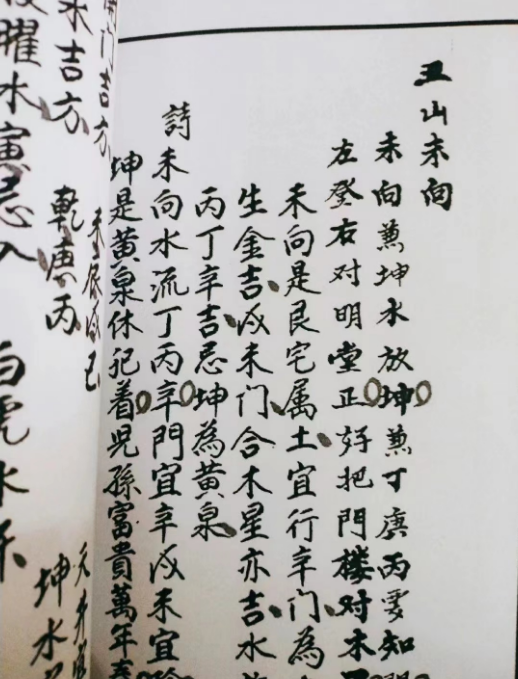 丑山未向
未向兼坤水放坤兼丁庚丙要知
左登右对明堂正好把門楼对木
未向是艮宅属土宜行辛门為
生金吉戌未门合木星亦吉水
丙丁辛吉忌坤為黄泉
詩
未向水流丁丙辛門宜辛戌未宜
坤是黄泉休記着児孫富貴萬年
门吉方
未辰戌
吉方 乾庚丙
曜水寅忌入 白虎水
坤水